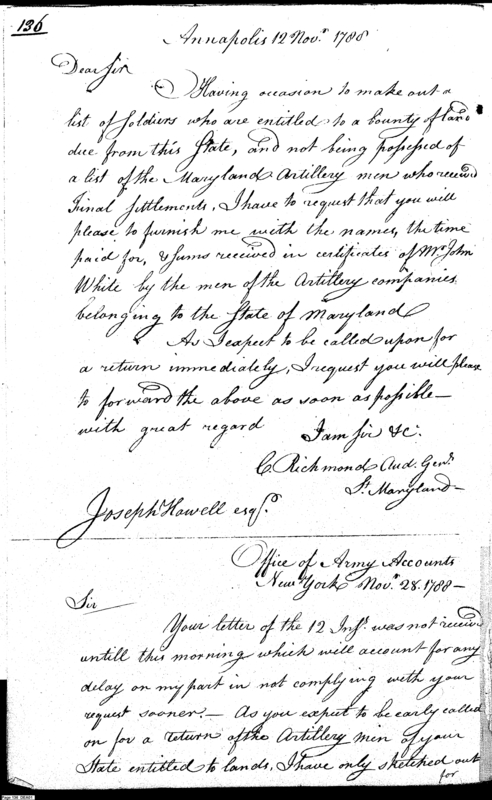 136
Annapolis 12 Novr. 1788
Dear Sir
Having occasion to make out a
list of Soldiers who are entitled to a bounty of land
due from this State, and not being possessed of
a list of the Maryland Artillery men who received
Final Settlements, I have to request that you will
please to furnish me with the names, the time
paid for, & sums received in certificates of Mr. John
White by the men of the Artillery companies
belonging to the State of Maryland
As I expect to be called upon for
a return immediately, I request you will please
to forward the above as soon as possible—
with great regard
I am Sir &c.
C. Richmond Aud. Genl.
St. Maryland—
Joseph Howell esqr.
Office of Army Accounts
New York Novr. 28. 1788—
Sir
Your letter of the 12 Inst. was not received
untill this morning which will account for any
delay on my part in not complying with your
request sooner.— As you expect to be early called
on for a return of the Artillery men of your
State entitled to lands, I have only sketched out
for